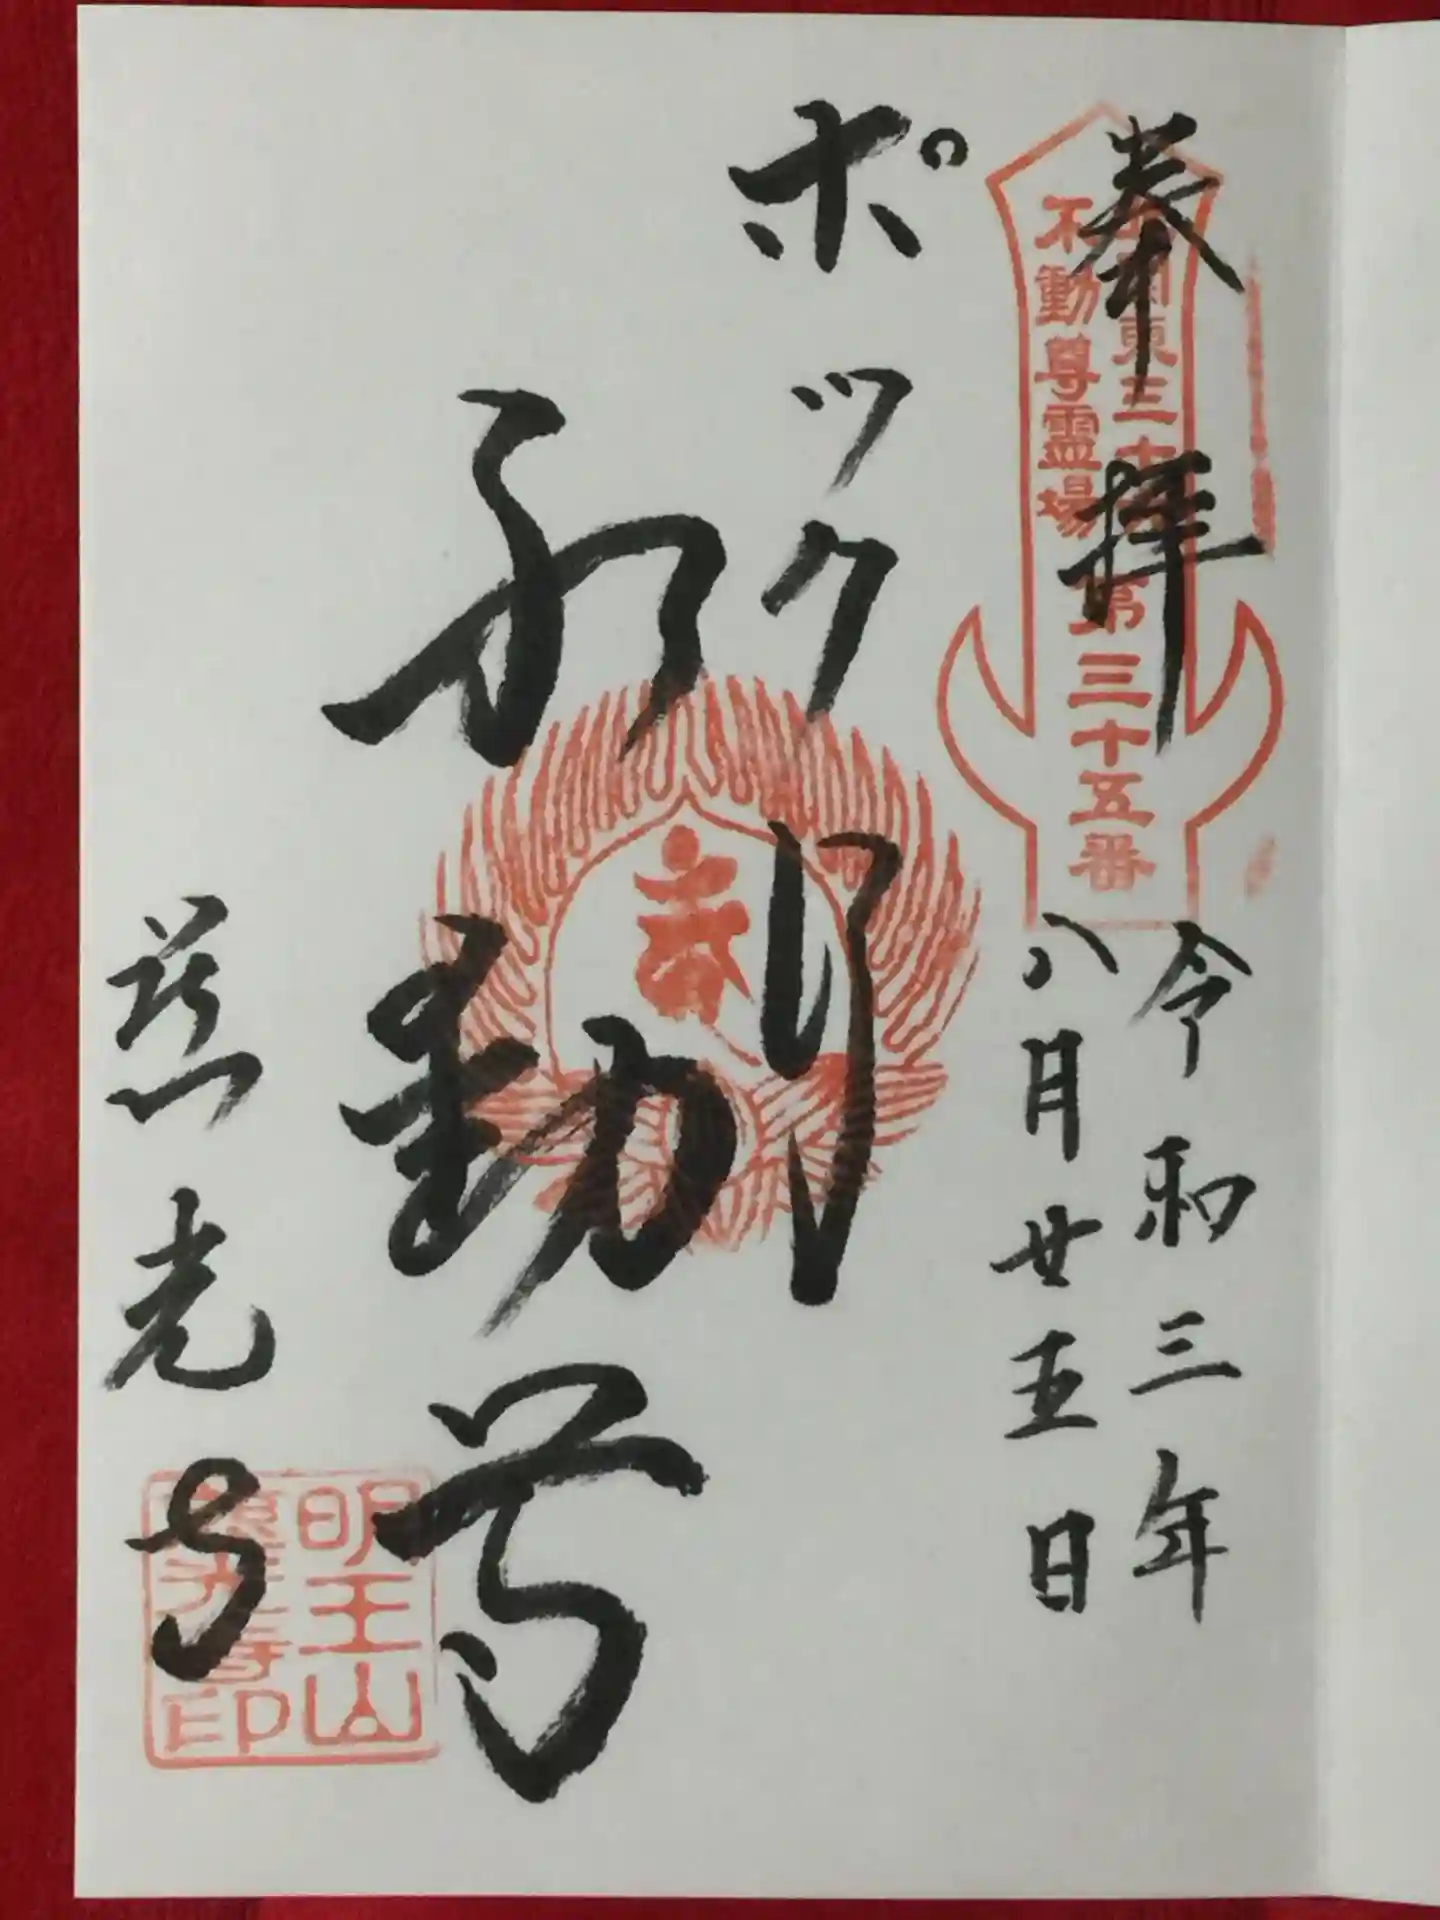 奉拝
北関東三十六
不動尊霊場
第三十五番
令和三年
八月廿五日
ポックリ
不動尊
慈光寺
明王山
慈光寺印